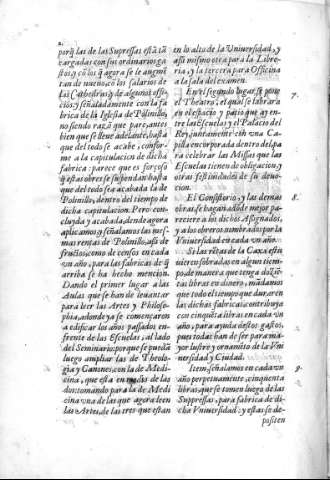 porq̃ las de las Supressas està tã
cargadas con sus ordinarios ga
stos, y cõ los q̃ agora se le augmẽ
tan de nueuo, cõ los salarios de
las Cathedras, y de algunos offi-
cios: y señaladamente con la fa
brica de la Iglesia de Polinillo,
no siendo razõ que pare, antes
bien que se lleue adelante, hasta
que del todo se acabe, confor-
me a la capitulacion de dicha
fabrica: parece que es forçoso
q̃ estas obras se suspendan, hasta
que del todo sea acabada la de
Polinillo, dentro del tiempo de
dicha capitulacion. Pero con-
cluyda y acabada, dende agora
aplicamos y señalamos las mes-
mas rentas de Polinillo, assi de
frutos, como de censos en cada
vn año, para las fabricas de q̃
arriba se ha hecho mencion.
Dando el primer lugar a las
Aulas que se han de leuantar
para leer las Artes y Philoso-
phia, adonde ya se començaren
a edificar los años passados en-
frente de las Escuelas, al lado
del Seminario: porque se pueda
luego ampliar las de Theolo-
gia y Canones, con la de Medi-
cina, que esta en medio de las
dos: tomando para la de Medi
cina vna de las que agora leen
las Artes, de las tres que estan
en lo alto de la Vniuersidad, y
assi mismo otra para la Libre-
ria, y la tercera para Officina
a la sala del examen.
7.
En el segundo lugar se pone
el Theatro, el qual se labrarà
en el espacio y patio que ay en-
tre las Escuelas y el Palacio del
Rey, juntamente cõ vna Ca
pilla encorporada dentro del pa
ra celebrar las Missas que las
Escuelas tienen de obligacion, y
otras festiuidades de su deuo-
cion.
8.
El Consistorio, y las demas
obras se hagan adõde mejor pa-
reciere a los dichos Assignados,
y a los obreros nombrados por la
Vniuersidad en cada vn año.
Si las rẽtas de la Caxa estu
uieren sobradas, en algun tiem-
po, de manera que tenga doziẽ
tas libras en dinero, mãdamos
que todo el tiempo que duraren
las dichas fabricas, contribuya
con cinquẽta libras en cada vn
año, para ayuda destos gastos,
pues todas han de ser para ma
yor lustre y ornamẽto de la Vni
uersidad y Ciudad.
9.
Item, señalamos en cada vn
año perpetuamente, cinquenta
libras, que se tomen luego de las
Supressas, para fabrica de di-
cha Vniuersidad: y estas se de-
positen